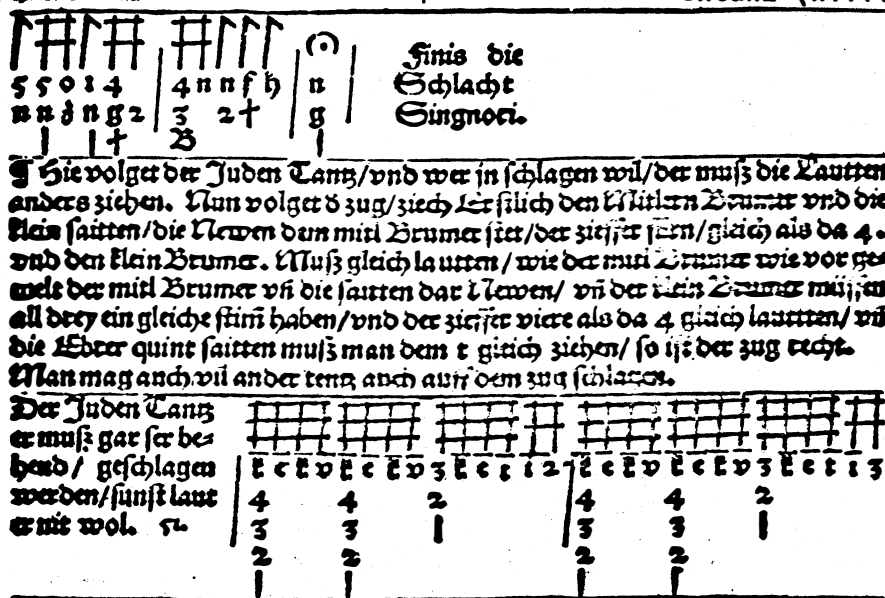 5 5 0 1 4 4 n n f h n
n n d n g 2 3 2 † g
† B
Finis die
Schlacht
Singnori.
¶ Hie volget der Juden Tantz/vnd wer jn schlagen wil/der muß die Lautten
anders ziehen. Nun volget d zug/ziech Erstlich den Mitlern Brumer vnd die
klein saitten/die Newen dem mitl Brumer stet/der ziffer /gleich als da 4.
vnd den klein Brumer. Muß gleich lautten/wie der mitl Brumer wie vor ge=
melt der mitl Brumer vñ die saitten dar Newen/ vñ der klein Brumer müssen
all drey ein gleiche stim̃ haben/vnd der ziffer viere als da 4 gleich lauttten/ vñ
die quint saitten muß man dem t gleich ziehen/ so ist der zug recht.
Man mag auch vil ander tentz auch auff dem zug schlagen.
Der Juden Tantz
er muß gar ser be=
hend/ geschlagen
werden/sunst laut
er nit wol.
k e k v k e k v 3 k e t 1 2 k e k v k e k v 3 k e t 1 3
4 4 2 4 4 2
3 3 3 3
2 2 2 2